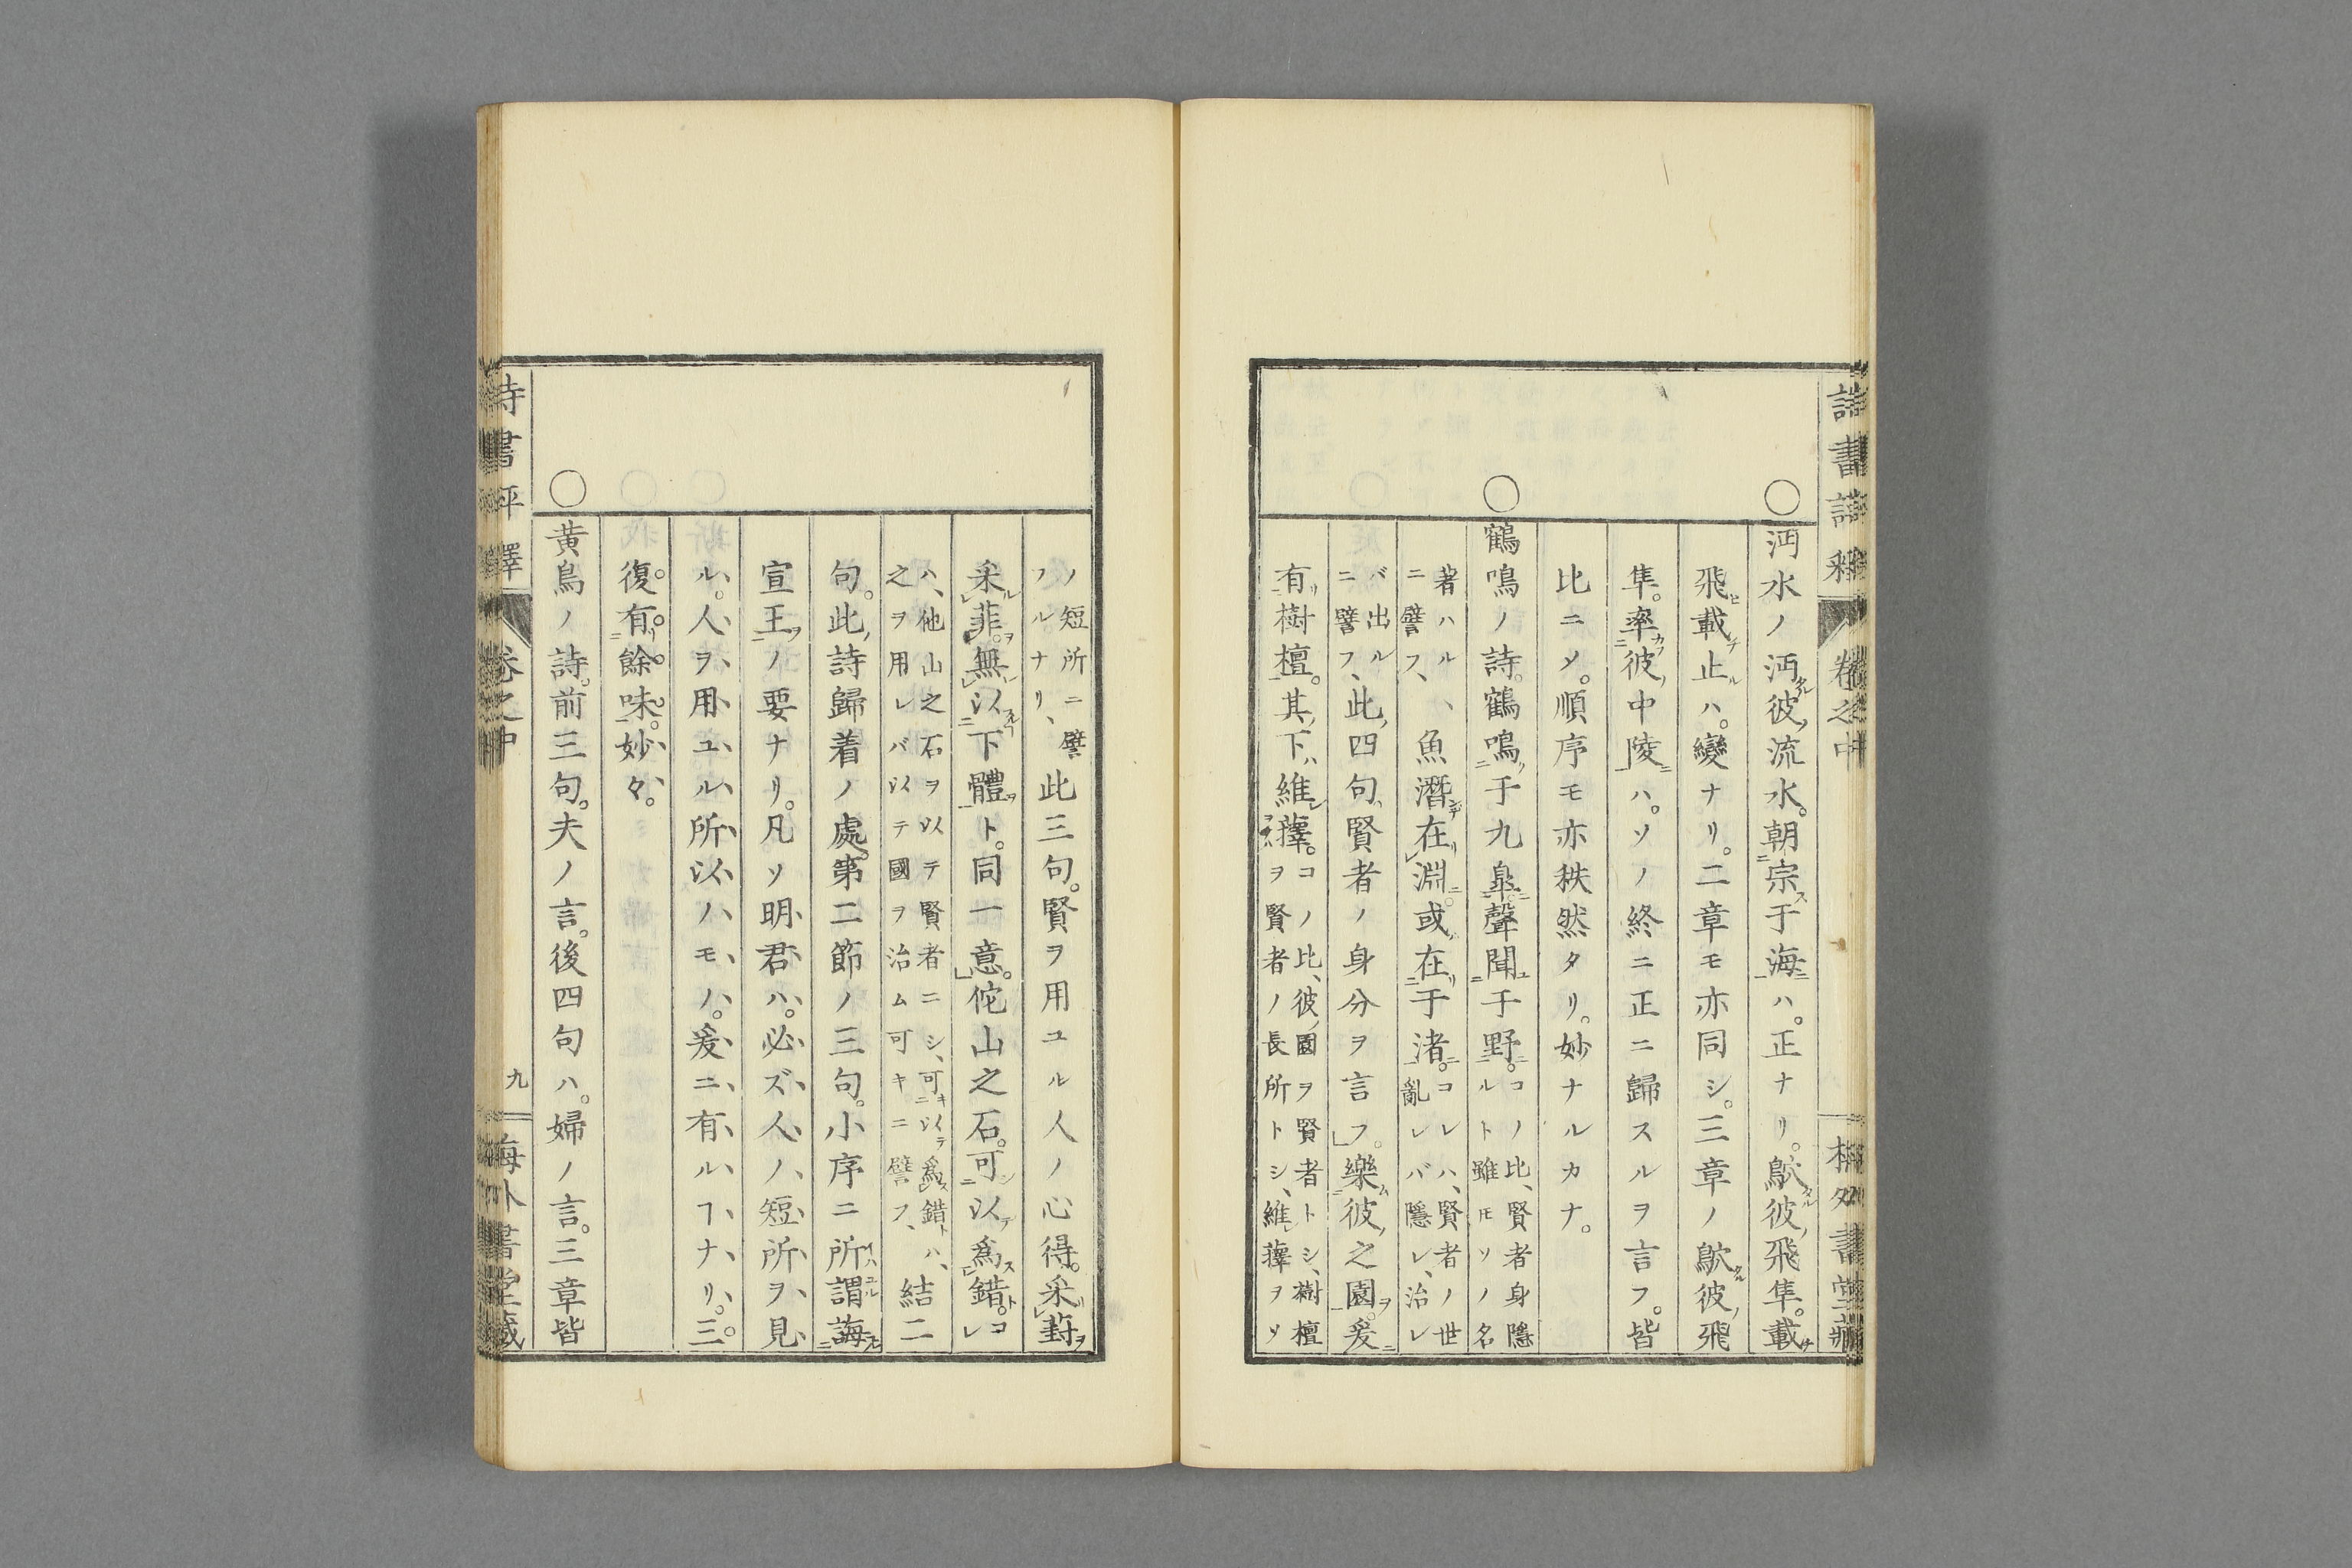 ○沔水ノ沔彼流水。朝宗于海ハ。正ナリ。鴥彼飛隼。載
飛載止ハ。變ナリ。二章モ亦同シ。三章ノ鴥彼飛
隼。率彼中陵ハ。ソノ終ニ正ニ歸スルヲ言フ。皆
比ニ〆。順序モ亦秩然タリ。妙ナルカナ。
○鶴鳴ノ詩。鶴鳴于九皐。聲聞于野。コノ比、賢者身隱
ルト雖𪜈ソノ名
著ハルヽ
ニ譬フ、魚潛在淵。或在于渚。コレハ、賢者ノ世
亂レバ隱レ、治レ
バ出ル
ニ譬フ、此四句、賢者ノ身分ヲ言フ。樂彼之園。爰
有樹檀。其下維蘀。コノ比、彼園ヲ賢者トシ、樹檀
ヲ賢者ノ長所トシ、維蘀ヲソ
ノ短所ニ譬
フルナリ、此三句。賢ヲ用ユル人ノ心得。采葑
采菲。無以下體ト。同一意。佗山之石。可以爲錯。コレ
ハ、他山之石ヲ以テ賢者ニシ、可以爲錯トハ、
之ヲ用レバ以テ國ヲ治ム可キニ譬フ、結二
句。此詩歸着ノ處。第二節ノ三句。小序ニ所謂誨
宣王ノ要ナリ。凡ソ明君ハ。必ズ人ノ短所ヲ見
ル。人ヲ用ユル所以ノモノ。爰ニ有ルヿナリ。三
復有餘味。妙々。
○黃鳥ノ詩。前三句。夫ノ言。後四句ハ。婦ノ言。三章皆
詩書評釋 卷之中 九 梅外書堂藏